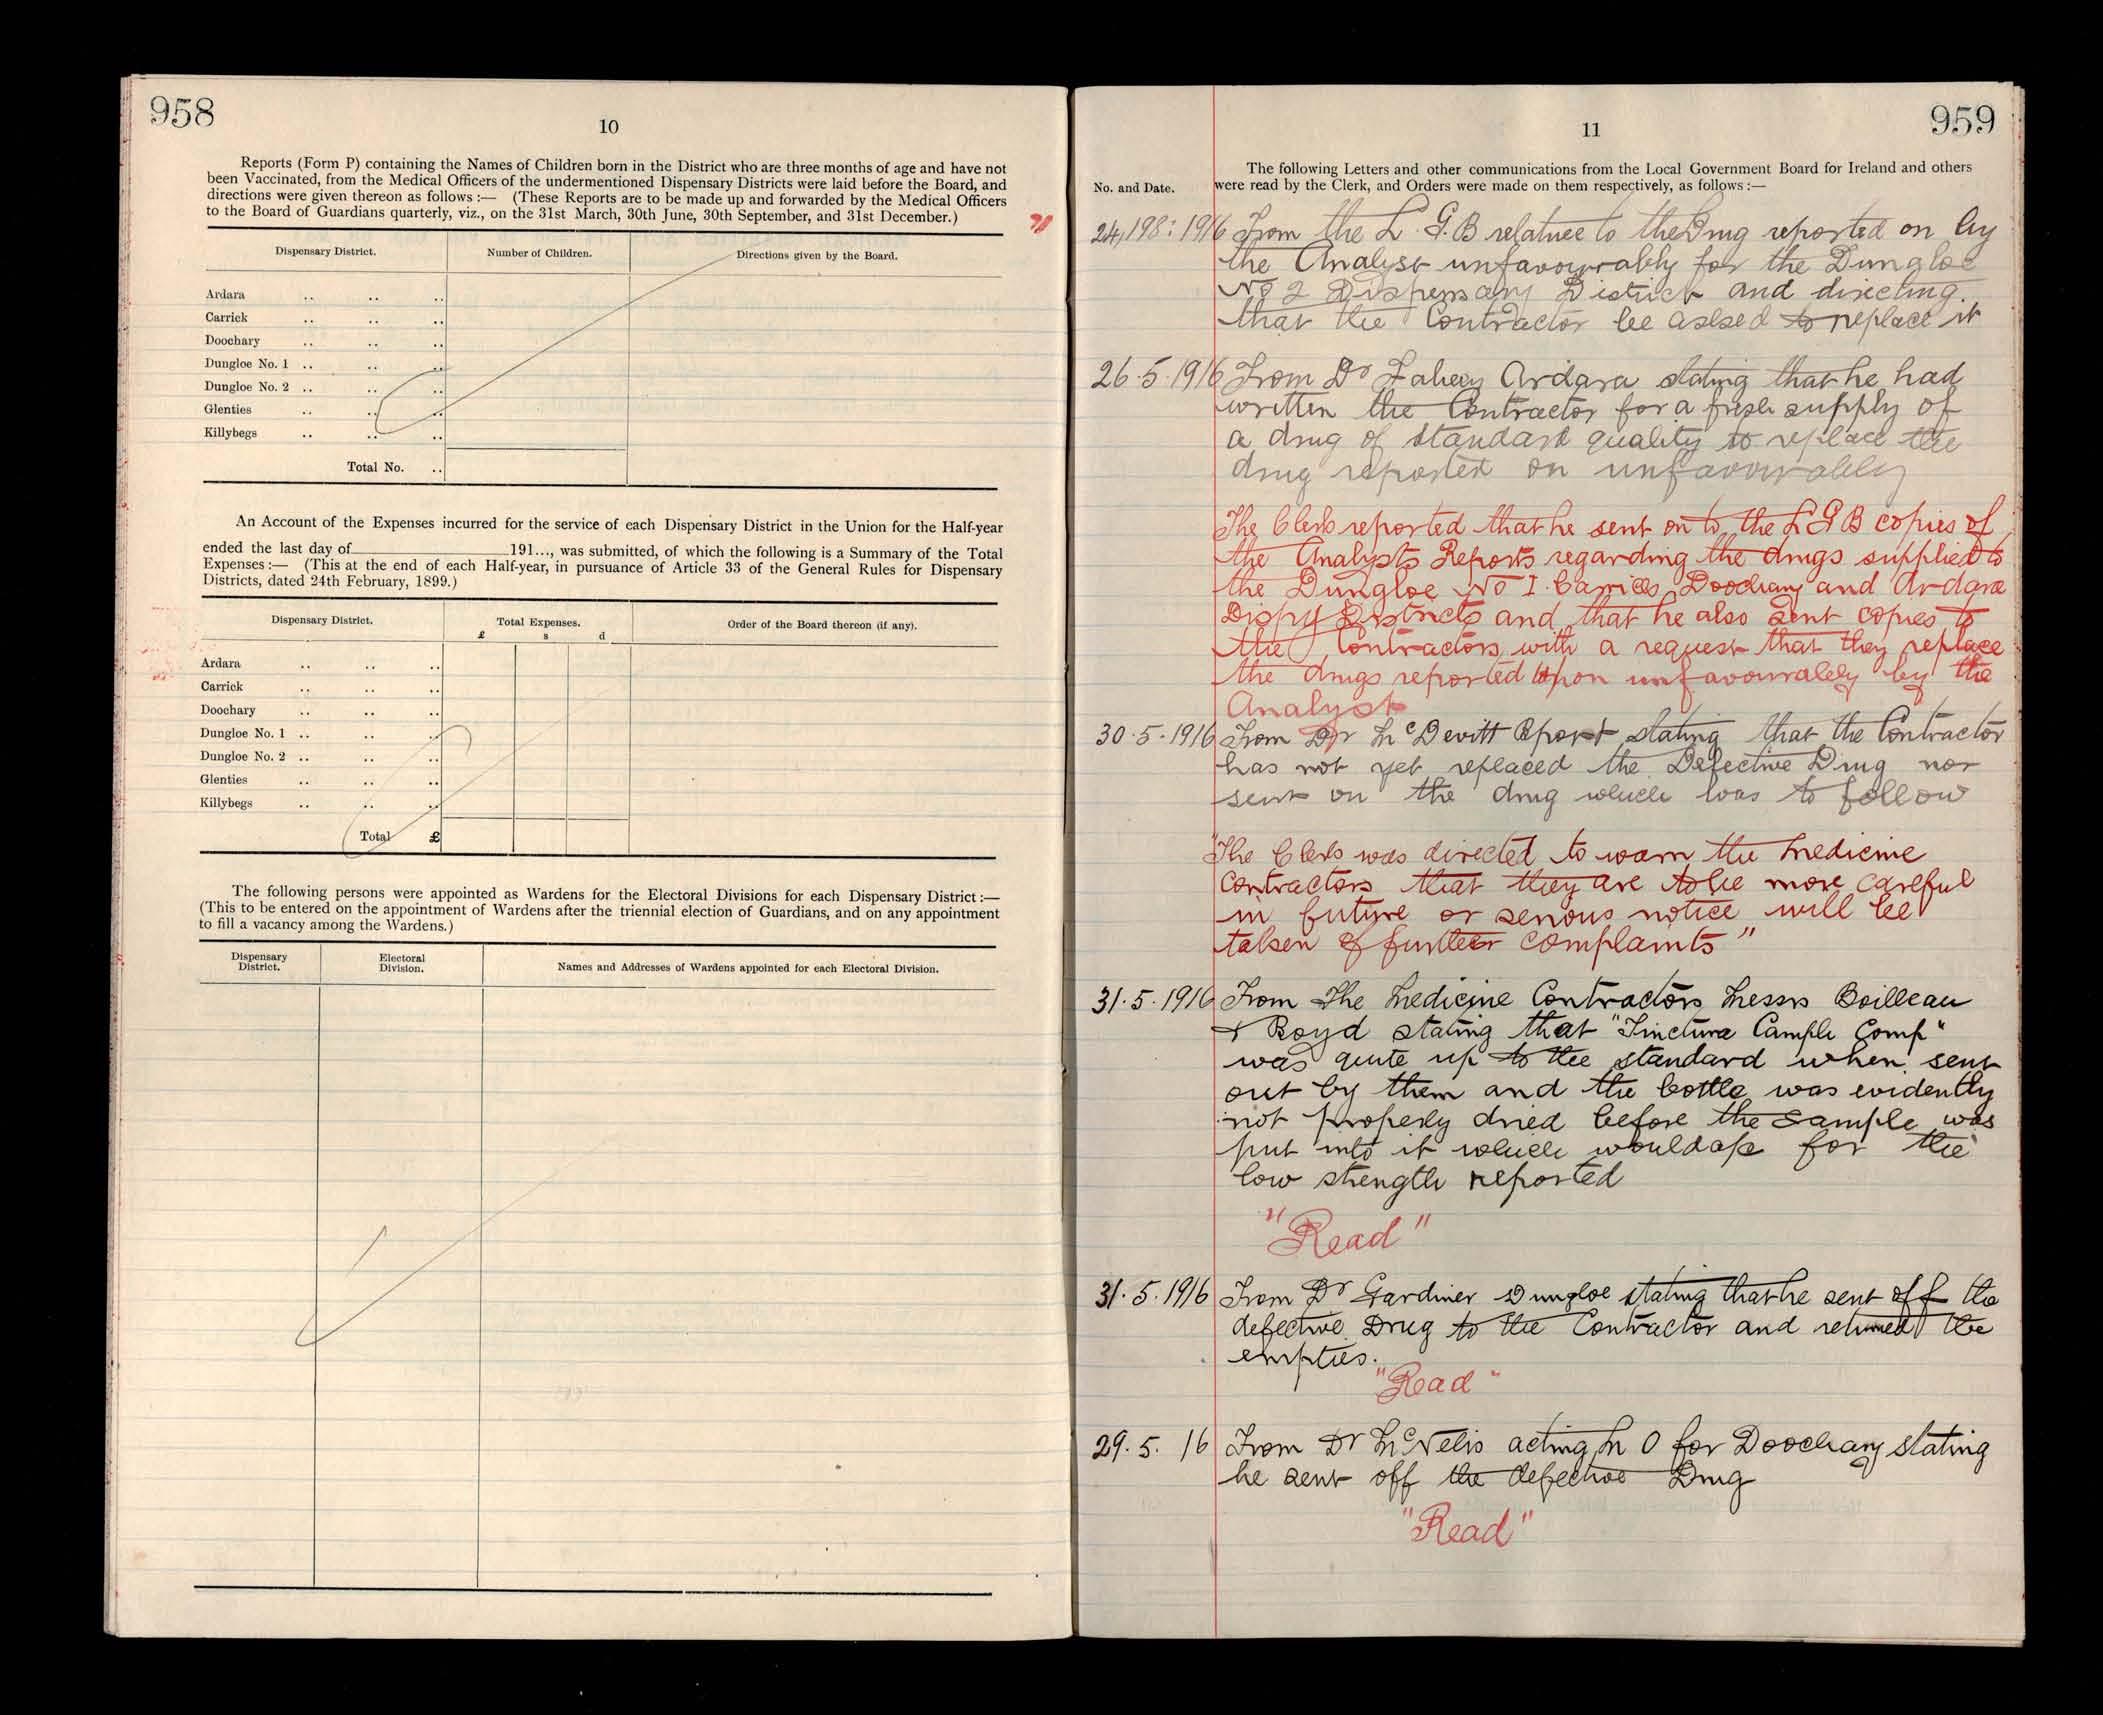 958
10
Reports (Form P) containing the Names of Children born in the District who are three months of age and have not
been Vaccinated, from the Medical Officers of the undermentioned Dispensary Districts were laid before the Board, and
directions were given thereon as follows :— (These Reports are to be made up and forwarded by the Medical Officers
to the Board of Guardians quarterly, viz., on the 31st March, 30th June, 30th September, and 31st December.)
Dispensary District. Number of Children. Directions given by the Board.
Ardara .. .. ..
Carrick .. .. ..
Doochary .. .. ..
Dungloe No. 1 .. .. ..
Dungloe No. 2 .. .. ..
Glenties .. .. ..
Killybegs .. .. ..
Total No. ..
An Account of the Expenses incurred for the service of each Dispensary District in the Union for the Half-year
ended the last day of 191..., was submitted, of which the following is a Summary of the Total
Expenses :— (This at the end of each Half-year, in pursuance of Article 33 of the General Rules for Dispensary
Districts, dated 24th February, 1899.)
Dispensary District. Total Expenses. Order of the Board thereon (if any).
£ s d
Ardara .. .. ..
Carrick .. .. ..
Doochary .. .. ..
Dungloe No. 1 .. .. ..
Dungloe No. 2 .. .. ..
Glenties .. .. ..
Killybegs .. .. ..
Total £
The following persons were appointed as Wardens for the Electoral Divisions for each Dispensary District :—
(This to be entered on the appointment of Wardens after the triennial election of Guardians, and on any appointment
to fill a vacancy among the Wardens.)
Dispensary District. Electoral Division. Names and Addresses of Wardens appointed for each Electoral Division.
959
11
The following Letters and other communications from the Local Government Board for Ireland and others
No. and Date. were read by the Clerk, and Orders were made on them respectively, as follows :—
24,198: 1916 From the L. G. B relative to the Drug reported on by
the Analyst unfavourably for the Dungloe
No 2 Dispensary District and directing
that the Contractor be asked to replace it
26.5.1916 From Dr Fahey Ardara stating that he had
written the Contractor for a fresh supply of
a drug of standard quality to replace the
drug reported on unfavourably
The Clerk reported that he sent on to the L G B copies of
the Analysts Reports regarding the drugs supplied to
the Dungloe No I. Carrick, Doochary and Ardara
Dispy Districts and that he also sent copies to
the Contractors with a request that they replace
the drugs reported upon unfavourably by the
Analyst
30.5.1916 From Dr McDevitt stating that the Contractor
has not yet replaced the Defective Drug nor
sent on the drug which was to follow
"The Clerk was directed to warn the Medicine
Contractors that they are to be more careful
in future or serious notice will be
taken of further complaints"
31.5.1916 From The Medicine Contractors Messrs Boilleau
& Boyd stating that "Tinctura Camph Comp"
was quite up to the standard when sent
out by them and the bottle was evidently
not properly dried before the sample was
put into it which would a/c for the
low strength reported
"Read"
31.5.1916 From Dr Gardiner Dungloe stating that he sent off the
defective Drug to the Contractor and returned the
empties.
"Read"
29.5.16 From Dr McNelis acting M O for Doochary stating
he sent off the defective Drug
"Read"